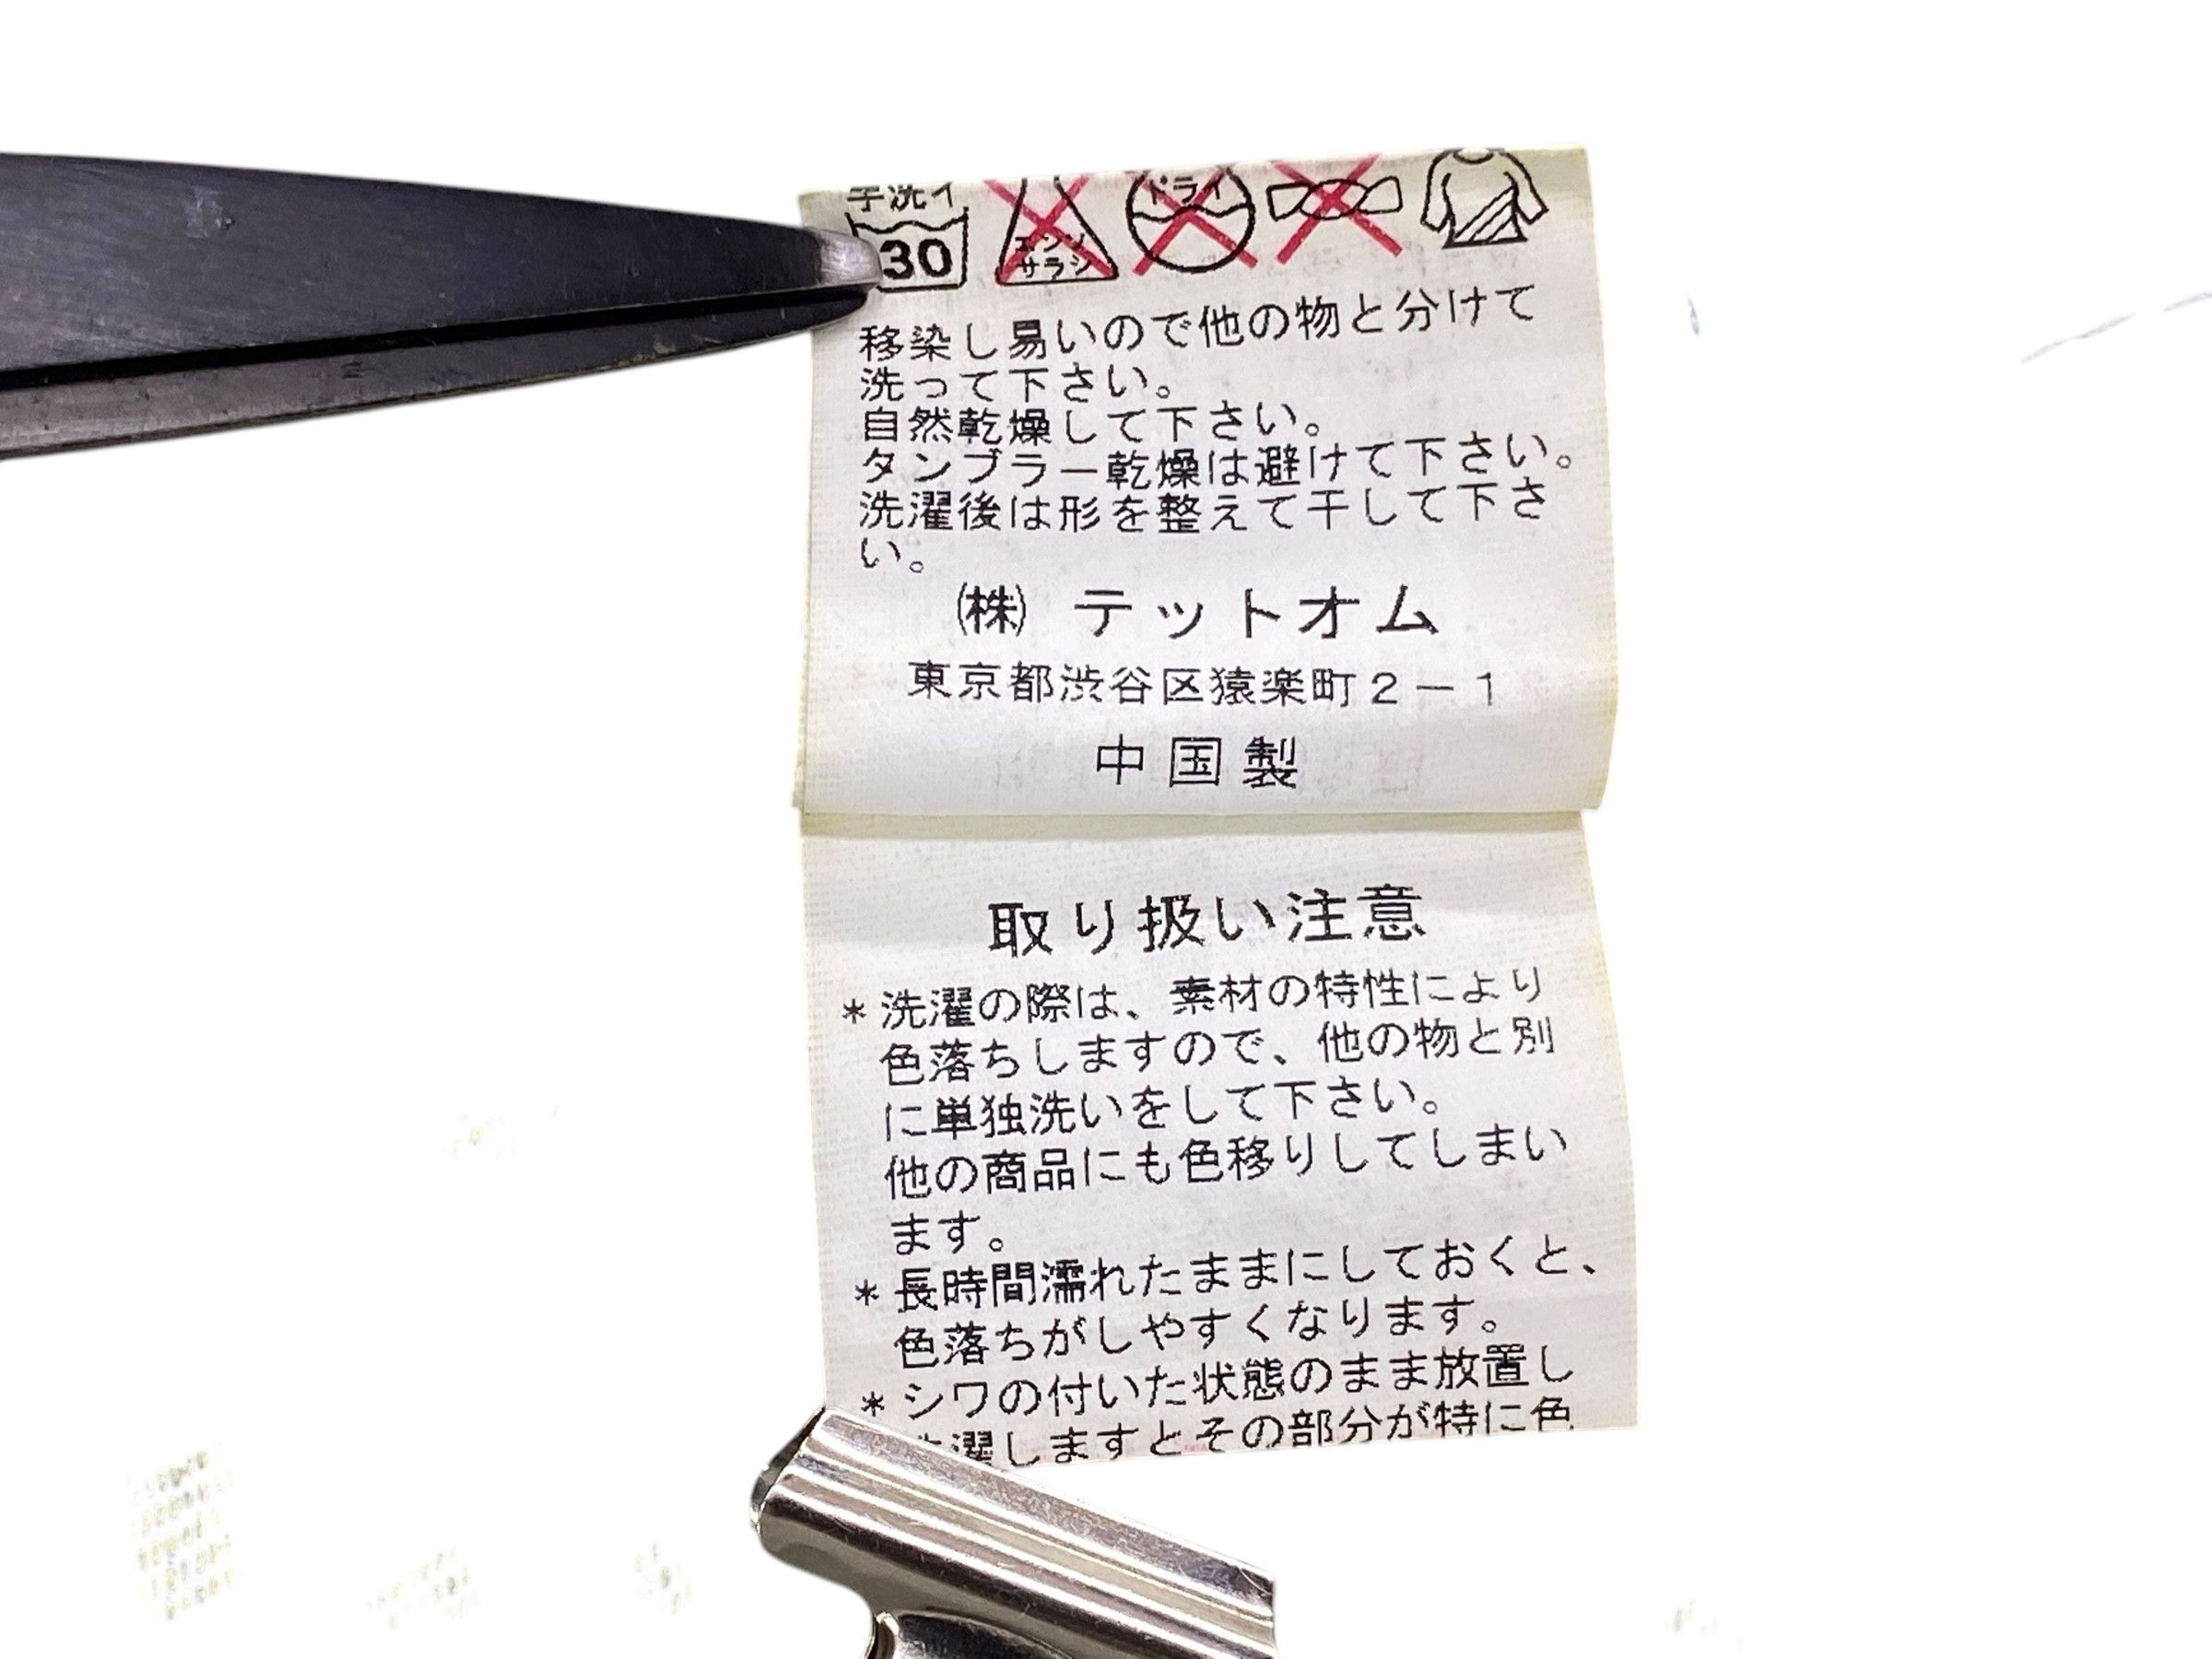 手洗イ
30
エンソ
サラシ
ドライ
移染し易いので他の物と分けて
洗って下さい。
自然乾燥して下さい。
タンブラー乾燥は避けて下さい。
洗濯後は形を整えて干して下さ
い。
㈱ テットオム
東京都渋谷区猿楽町2-1
中国製
取り扱い注意
* 洗濯の際は、素材の特性により
色落ちしますので、他の物と別
に単独洗いをして下さい。
他の商品にも色移りしてしまい
ます。
* 長時間濡れたままにしておくと、
色落ちがしやすくなります。
* シワの付いた状態のまま放置し
濯しますとその部分が特に色